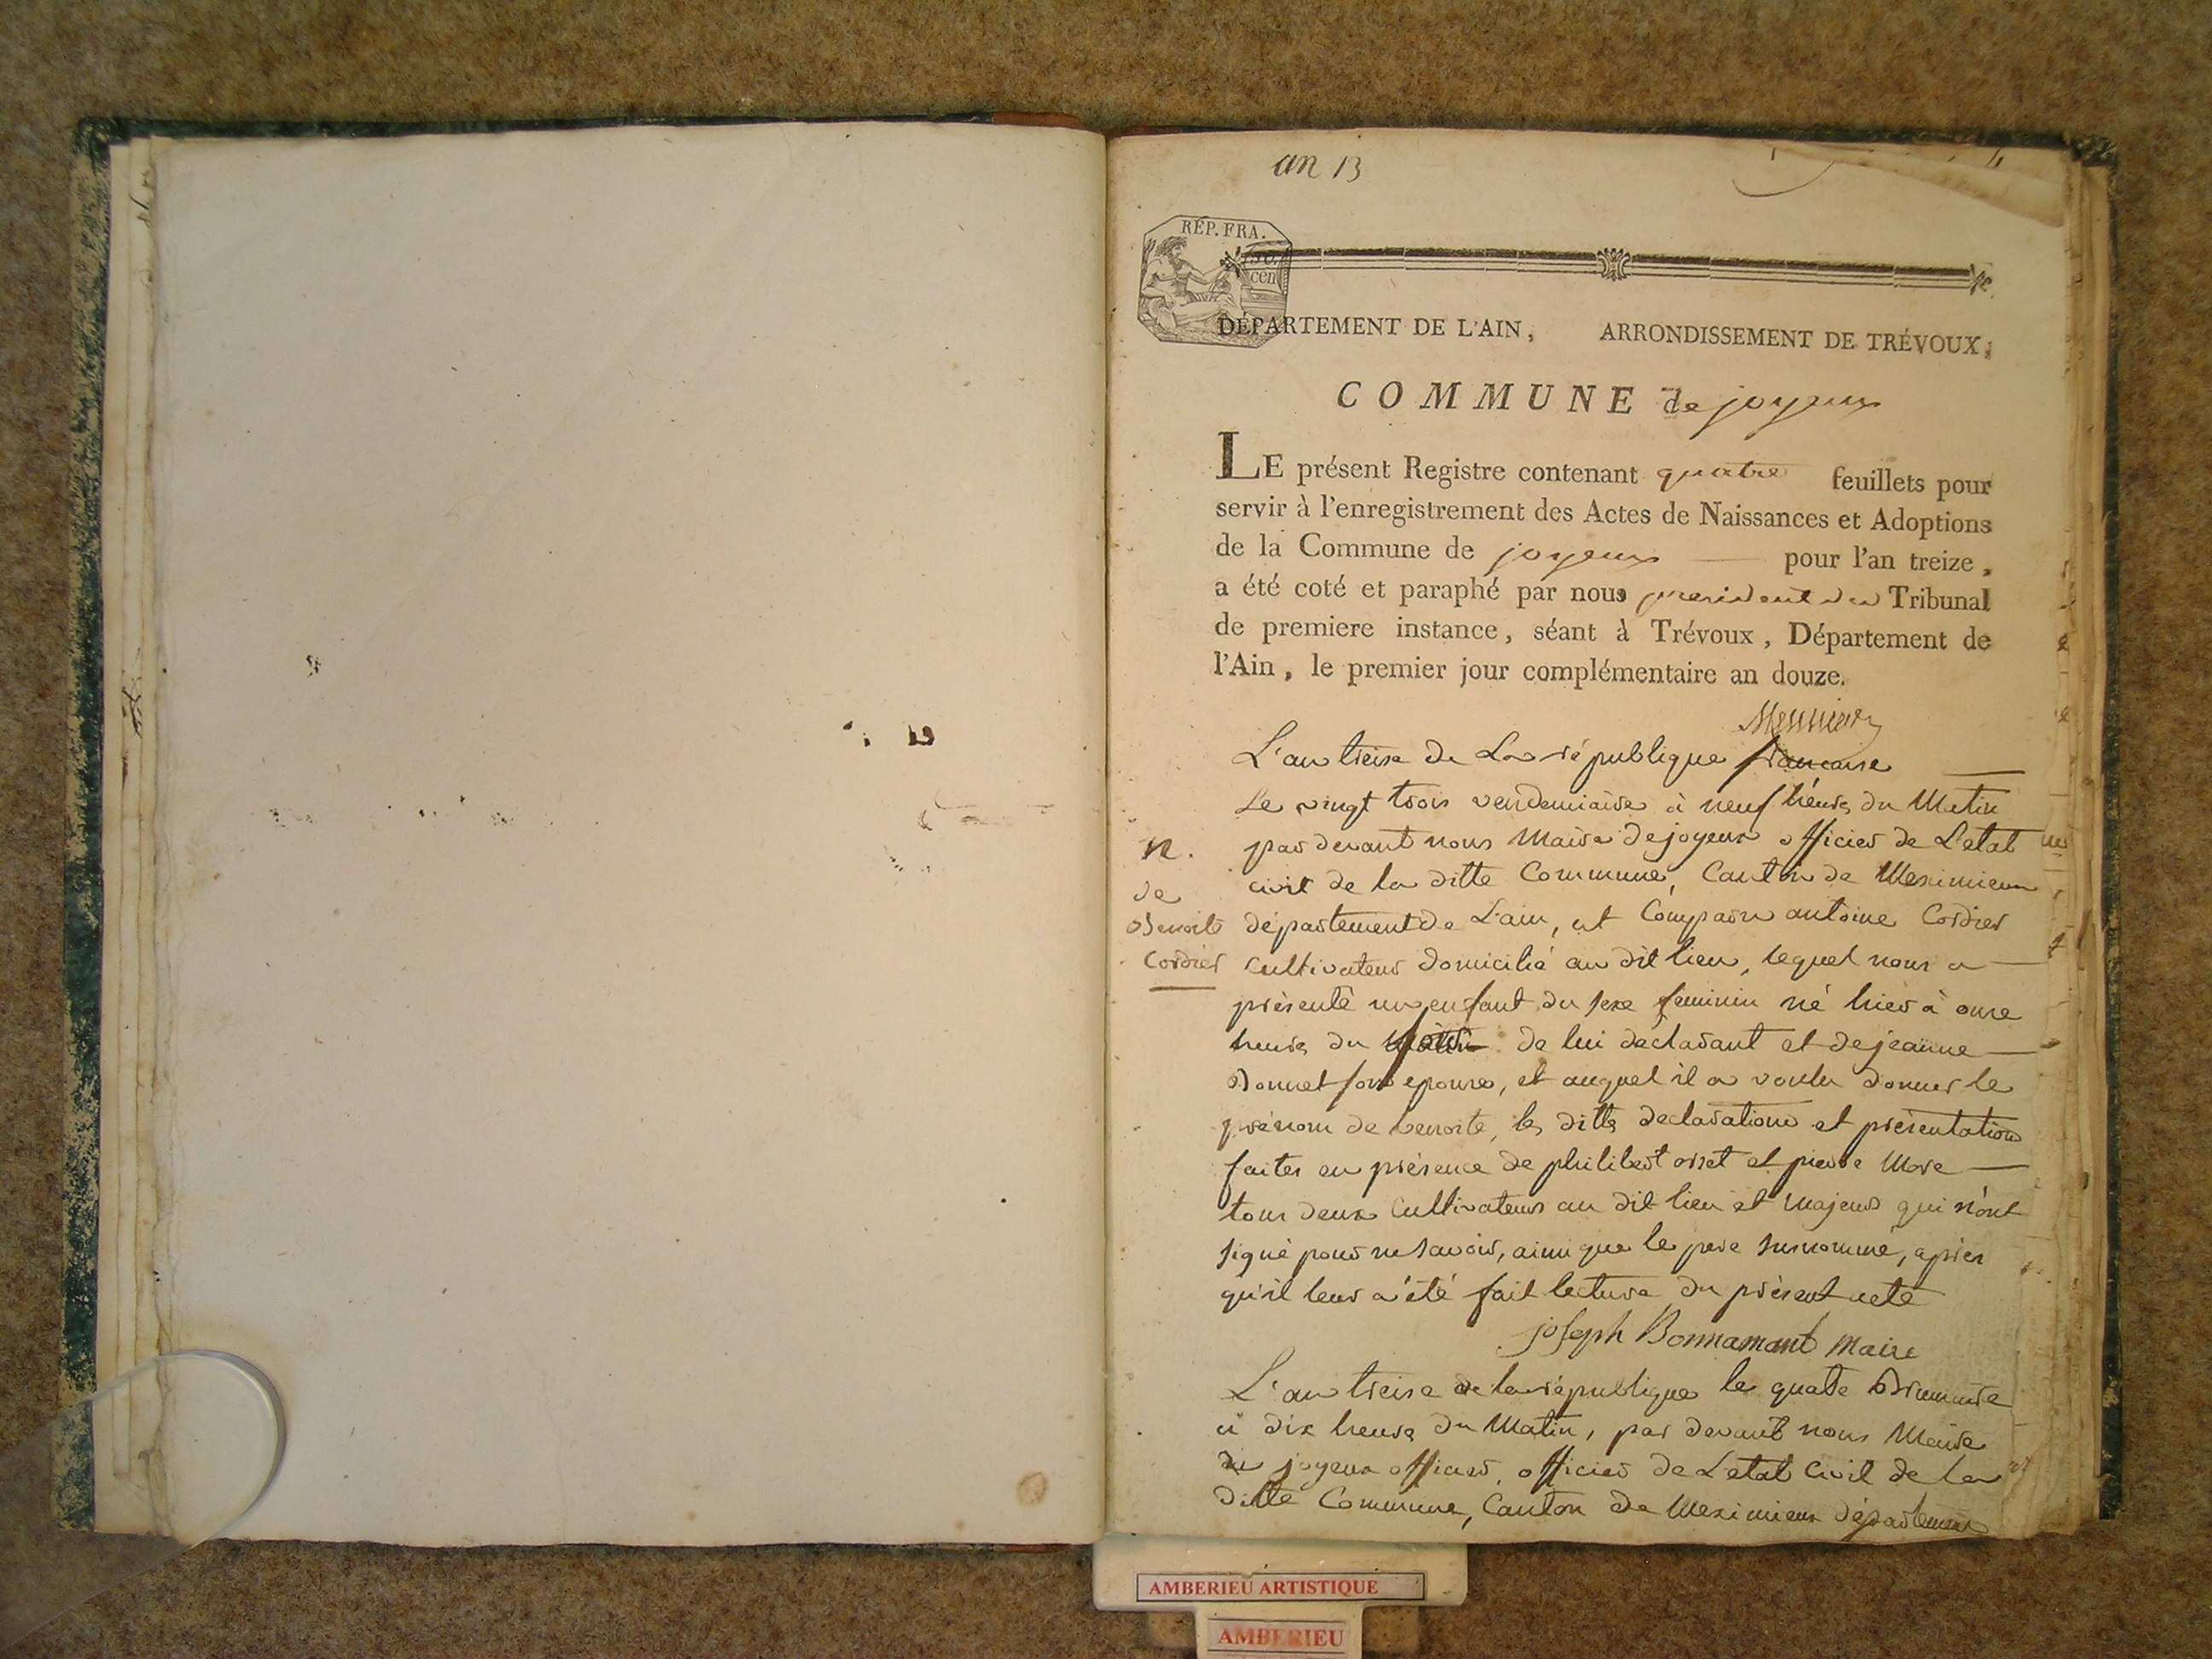 an 13
RÉP. FRA.
50
cen
DÉPARTEMENT DE L'AIN, ARRONDISSEMENT DE TRÉVOUX,
COMMUNE de joyeux
LE présent Registre contenant quatre feuillets pour
servir à l'enregistrement des Actes de Naissances et Adoptions
de la Commune de joyeux — pour l'an treize,
a été coté et paraphé par nous president du Tribunal
de premiere instance, séant à Trévoux, Département de
l'Ain, le premier jour complémentaire an douze.
L'an treise de La république francaise
Le vingt trois vendemiaire à neuf héures du Matin
par devant nous Maire de joyeux officier de L'etat
civil de la ditte Commune, Canton de Meximieux
département de L'ain, est Comparu antoine Cordier
cultivateur domicilié au dit lieu, lequel nous a
présenté un enfant du sexe feminin né hier à onze
heures du de lui declarant et de jeanne
Bonnet son epouse, et auquel il a voulu donner le
prénom de benoite, les dittes declaration et présentation
faites en présence de philibert orset et pierre More
tous deux cultivateurs au dit lieu et majeurs qui n'ont
signé pour ne savoir, ainsi que le pere susnommé, aprés
qu'il leur a été fait lecture du présent acte
joseph Bonnamant maire
N.
de
Benoite
Cordier
L'an treise de la république le quatre Brumaire
à dix heures du Matin, par devant nous Maire
de joyeux officier, officier de L'etat Civil de la
ditte Commune, Canton de Meximieux département
AMBERIEU ARTISTIQUE
AMBERIEU